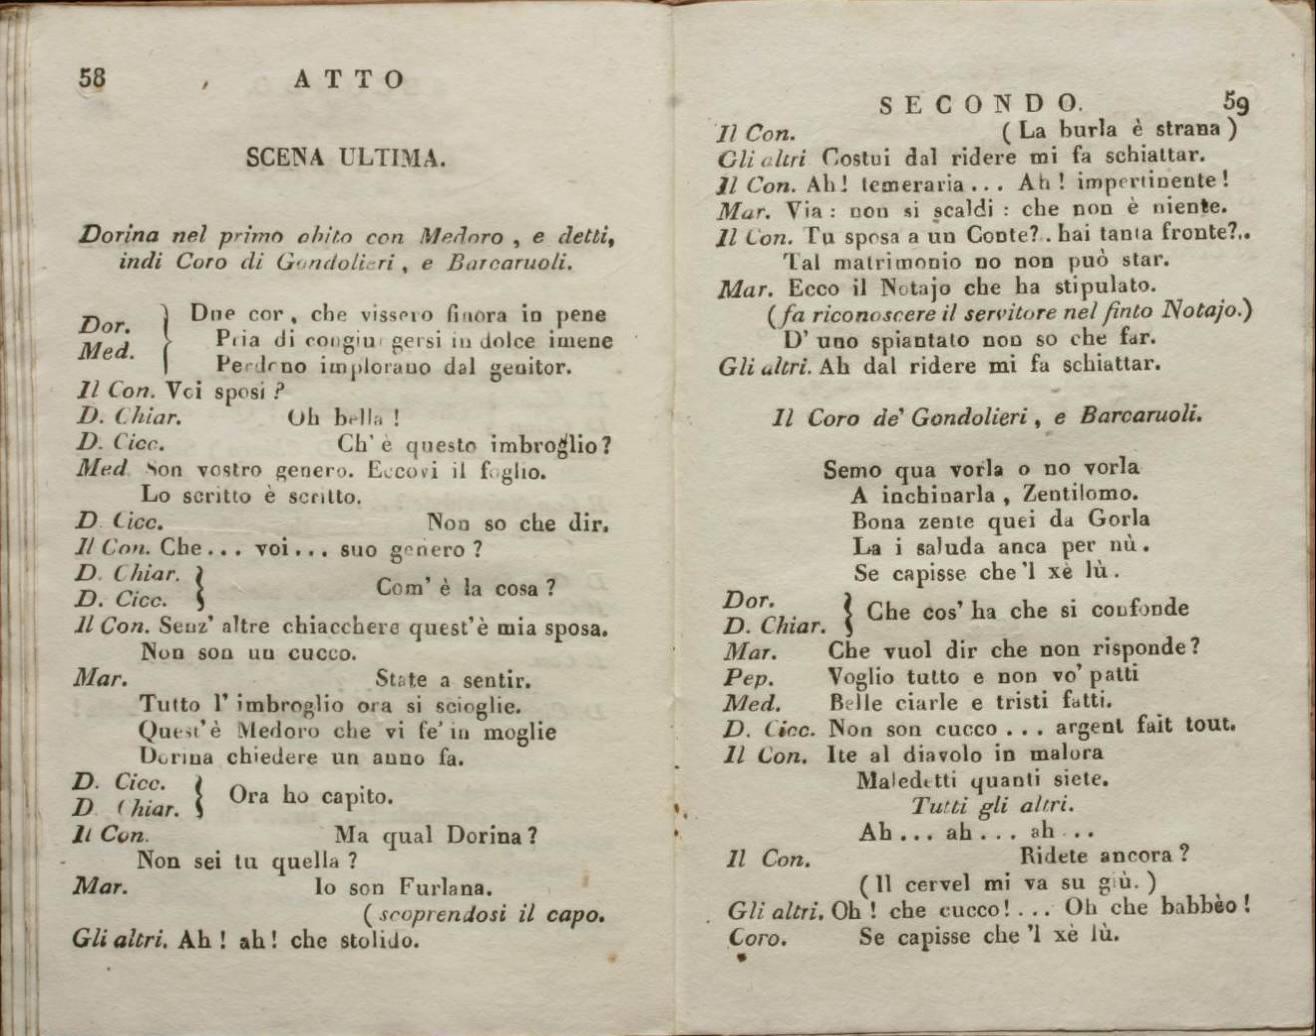 58 ATTO
SCENA ULTIMA.
Dorina nel primo abito con Medoro, e detti,
indi Coro di Gondolieri, e Barcaruoli.
Dor. Due cor, che vissero finora in pene
Med. Pria di congiungersi in dolce imene
Perdono implorano dal genitor.
Il Con. Voi sposi?
D. Chiar. Oh bella!
D. Cicc. Ch'è questo imbroglio?
Med. Son vostro genero. Eccovi il foglio.
Lo scritto è scritto.
D. Cicc. Non so che dir.
Il Con. Che... voi... suo genero?
D. Chiar.
D. Cicc. } Com'è la cosa?
Il Con. Senz'altre chiacchere quest'è mia sposa.
Non son un cucco.
Mar. State a sentir.
Tutto l'imbroglio ora si scioglie.
Quest'è Medoro che vi fe' in moglie
Dorina chiedere un anno fa.
D. Cicc.
D. Chiar. } Ora ho capito.
Il Con. Ma qual Dorina?
Non sei tu quella?
Mar. Io son Furlana.
(scoprendosi il capo.
Gli altri. Ah! ah! che stolido.
SECONDO. 59
Il Con. (La burla è strana)
Gli altri Costui dal ridere mi fa schiattar.
Il Con. Ah! temeraria... Ah! impertinente!
Mar. Via: non si scaldi: che non è niente.
Il Con. Tu sposa a un Conte?.. hai tanta fronte?..
Tal matrimonio no non può star.
Mar. Ecco il Notajo che ha stipulato.
(fa riconoscere il servitore nel finto Notajo.)
D'uno spiantato non so che far.
Gli altri. Ah dal ridere mi fa schiattar.
Il Coro de' Gondolieri, e Barcaruoli.
Semo qua vorla o no vorla
A inchinarla, Zentilomo.
Bona zente quei da Gorla
La i saluda anca per nù.
Se capisse che 'l xè lù.
Dor.
D. Chiar. } Che cos'ha che si confonde
Mar. Che vuol dir che non risponde?
Pep. Voglio tutto e non vo' patti
Med. Belle ciarle e tristi fatti.
D. Cicc. Non son cucco... argent fait tout.
Il Con. Ite al diavolo in malora
Maledetti quanti siete.
Tutti gli altri.
Ah... ah... ah...
Il Con. Ridete ancora?
(Il cervel mi va su giù.)
Gli altri. Oh! che cucco!... Oh che babbèo!
Coro. Se capisse che 'l xè lù.